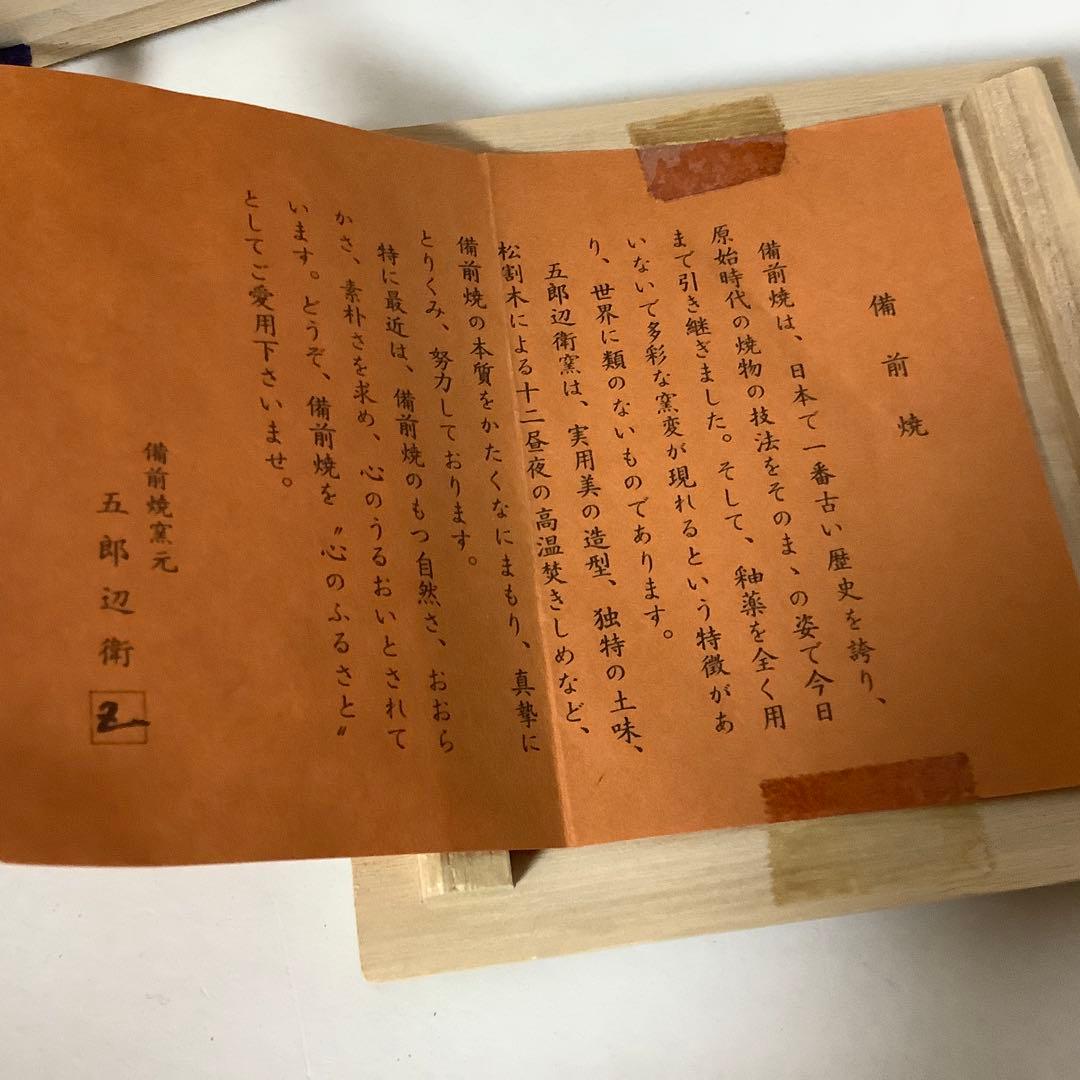 備前焼
備前焼は、日本で一番古い歴史を誇り、
原始時代の焼物の技法をそのまゝの姿で今日
まで引き継ぎました。そして、釉薬を全く用
いないで多彩な窯変が現れるという特徴があ
り、世界に類のないものであります。
五郎辺衛窯は、実用美の造型、独特の土味、
松割木による十二昼夜の高温焚きしめなど、
備前焼の本質をかたくなにまもり、真摯に
とりくみ、努力しております。
特に最近は、備前焼のもつ自然さ、おおら
かさ、素朴さを求め、心のうるおいとされて
います。どうぞ、備前焼を〝心のふるさと〟
としてご愛用下さいませ。
備前焼窯元
五郎辺衛